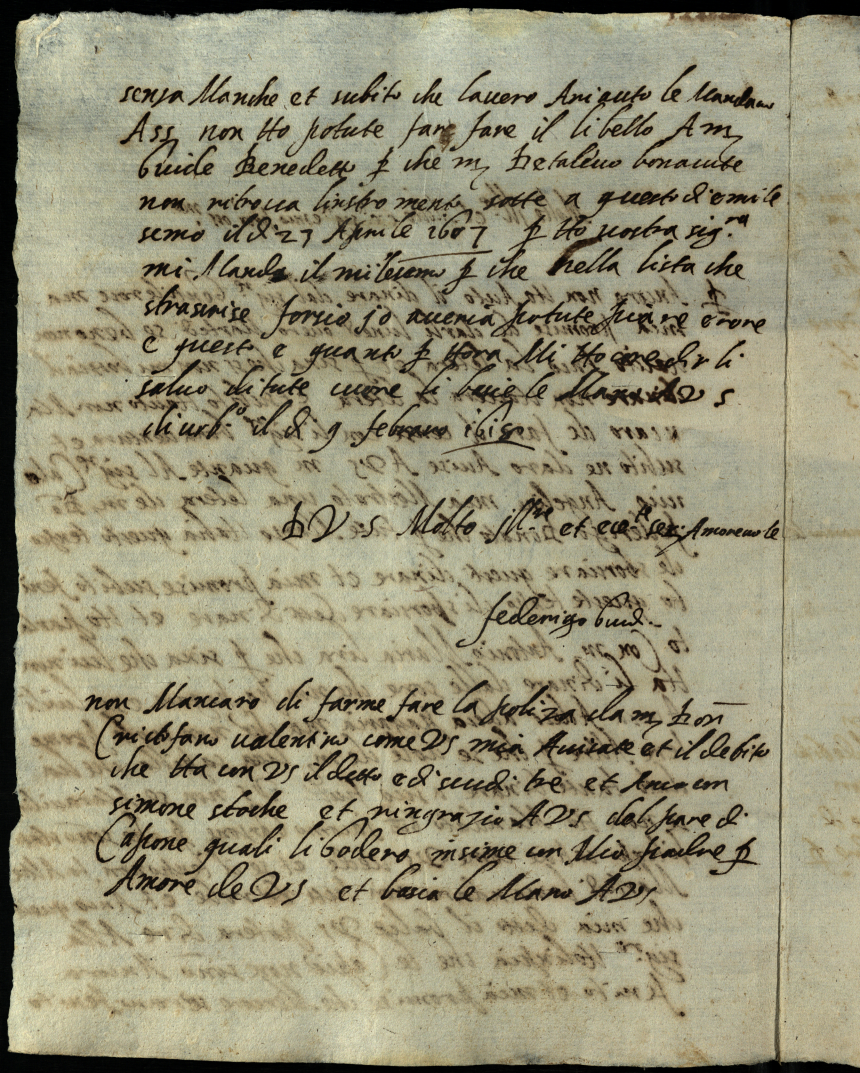 senza Manche et subito che lavero Ariauto le Mandaro
A ss non tto potute far fare il libello A m
Guide Benedetto ꝑ che m Betalino bonauite
non ritroua linstromento sotte a questo di e mile
semo il di 27 Aprile 1607 ꝑ tto vostra sig.ra
mi Manda il milesemo ꝑ che nella lista che
strascrise forsio jo aueria potute piare erore
e questo e quanto ꝑ ttora Mi tto li
saluo di tute cuore li bacie le Mani di V S
di urb.o il di 9 febraro 1615
D V S Molto jll.re et ecc.te ser. Amoreuole
federigo Guid.
non Mancaro di farme fare la poliza da m Don
Cristofano ualentino come VS mia Auisate et il debito
che tta con VS il detto e di scudi tre et Ancor con
simone stoche et ringrazio A VS del pare di
Capone quali li Godero insime con Mio padre ꝑ
Amore de VS et bacia le Mano A VS